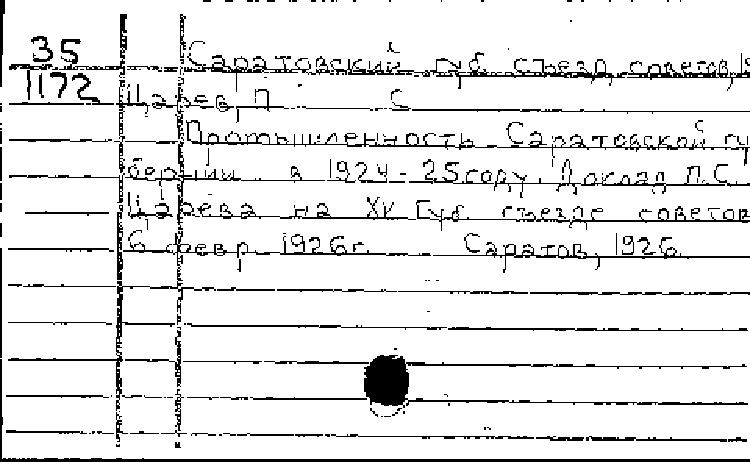 35
1172
Саратовский губ. съезд советов,
Царев, П С
Промышленность Саратовской гу
бернии в 1924-25 году. Доклад П.С.
Царева на XV Губ. съезде советов
6 февр. 1926г. Саратов, 1926